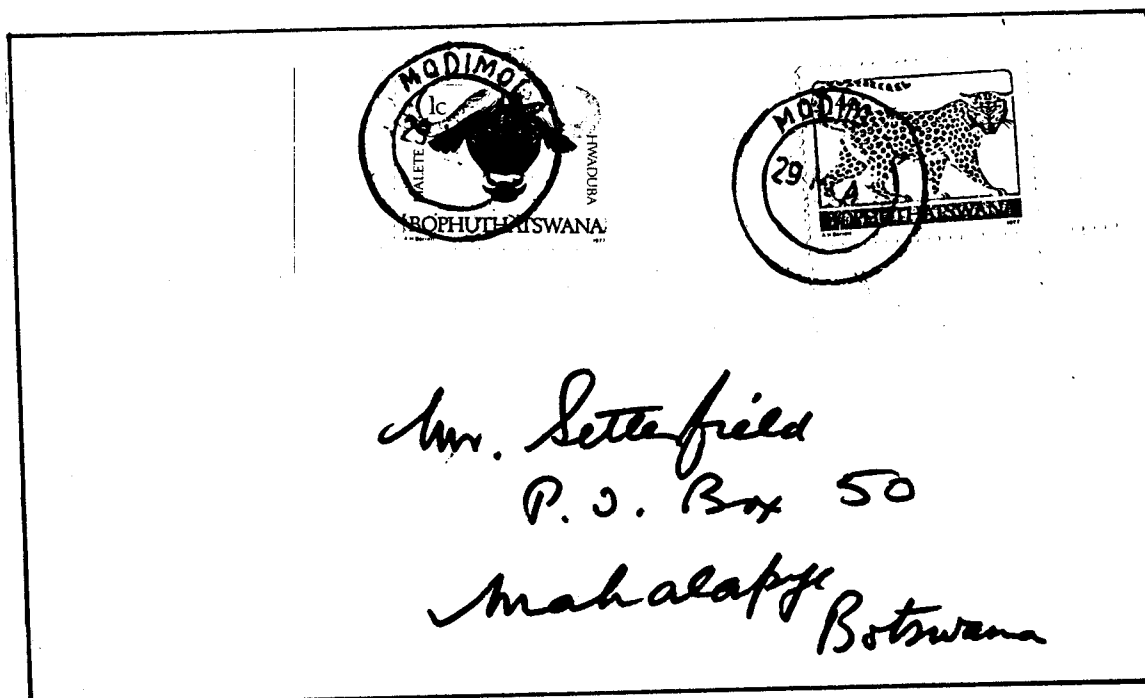 MODIMO
1c
29
HALETE
HWADUBA
BOPHUTHATSWANA
1977
MODIM
29
BOPHUTHATSWANA
1977
Mr. Setterfield
P.O. Box 50
Mahalapye
Botswana